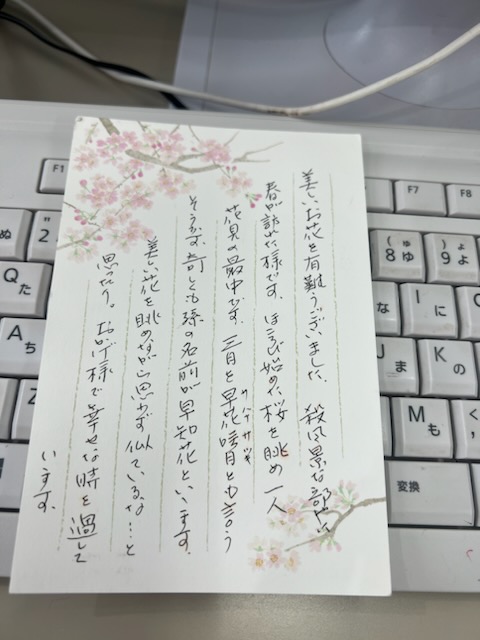 美しいお花を有難うございました。殺風景な部屋に
春が訪れた様です。ほころび始めた桜を眺め一人
花見の最中です。三月を早花咲月とも言う
そうです。奇しくも孫の名前が早知花といいます。
美しい花を眺めながら思わず似ているな…と
思ったり。お陰様で幸せな時を過して
います。
F1 F7 F8
ぬ " 2 ふ ( 8 ゆ ゅ ) 9 よ ょ
Q た な I に
A ち ま K の
M も く 、
変換